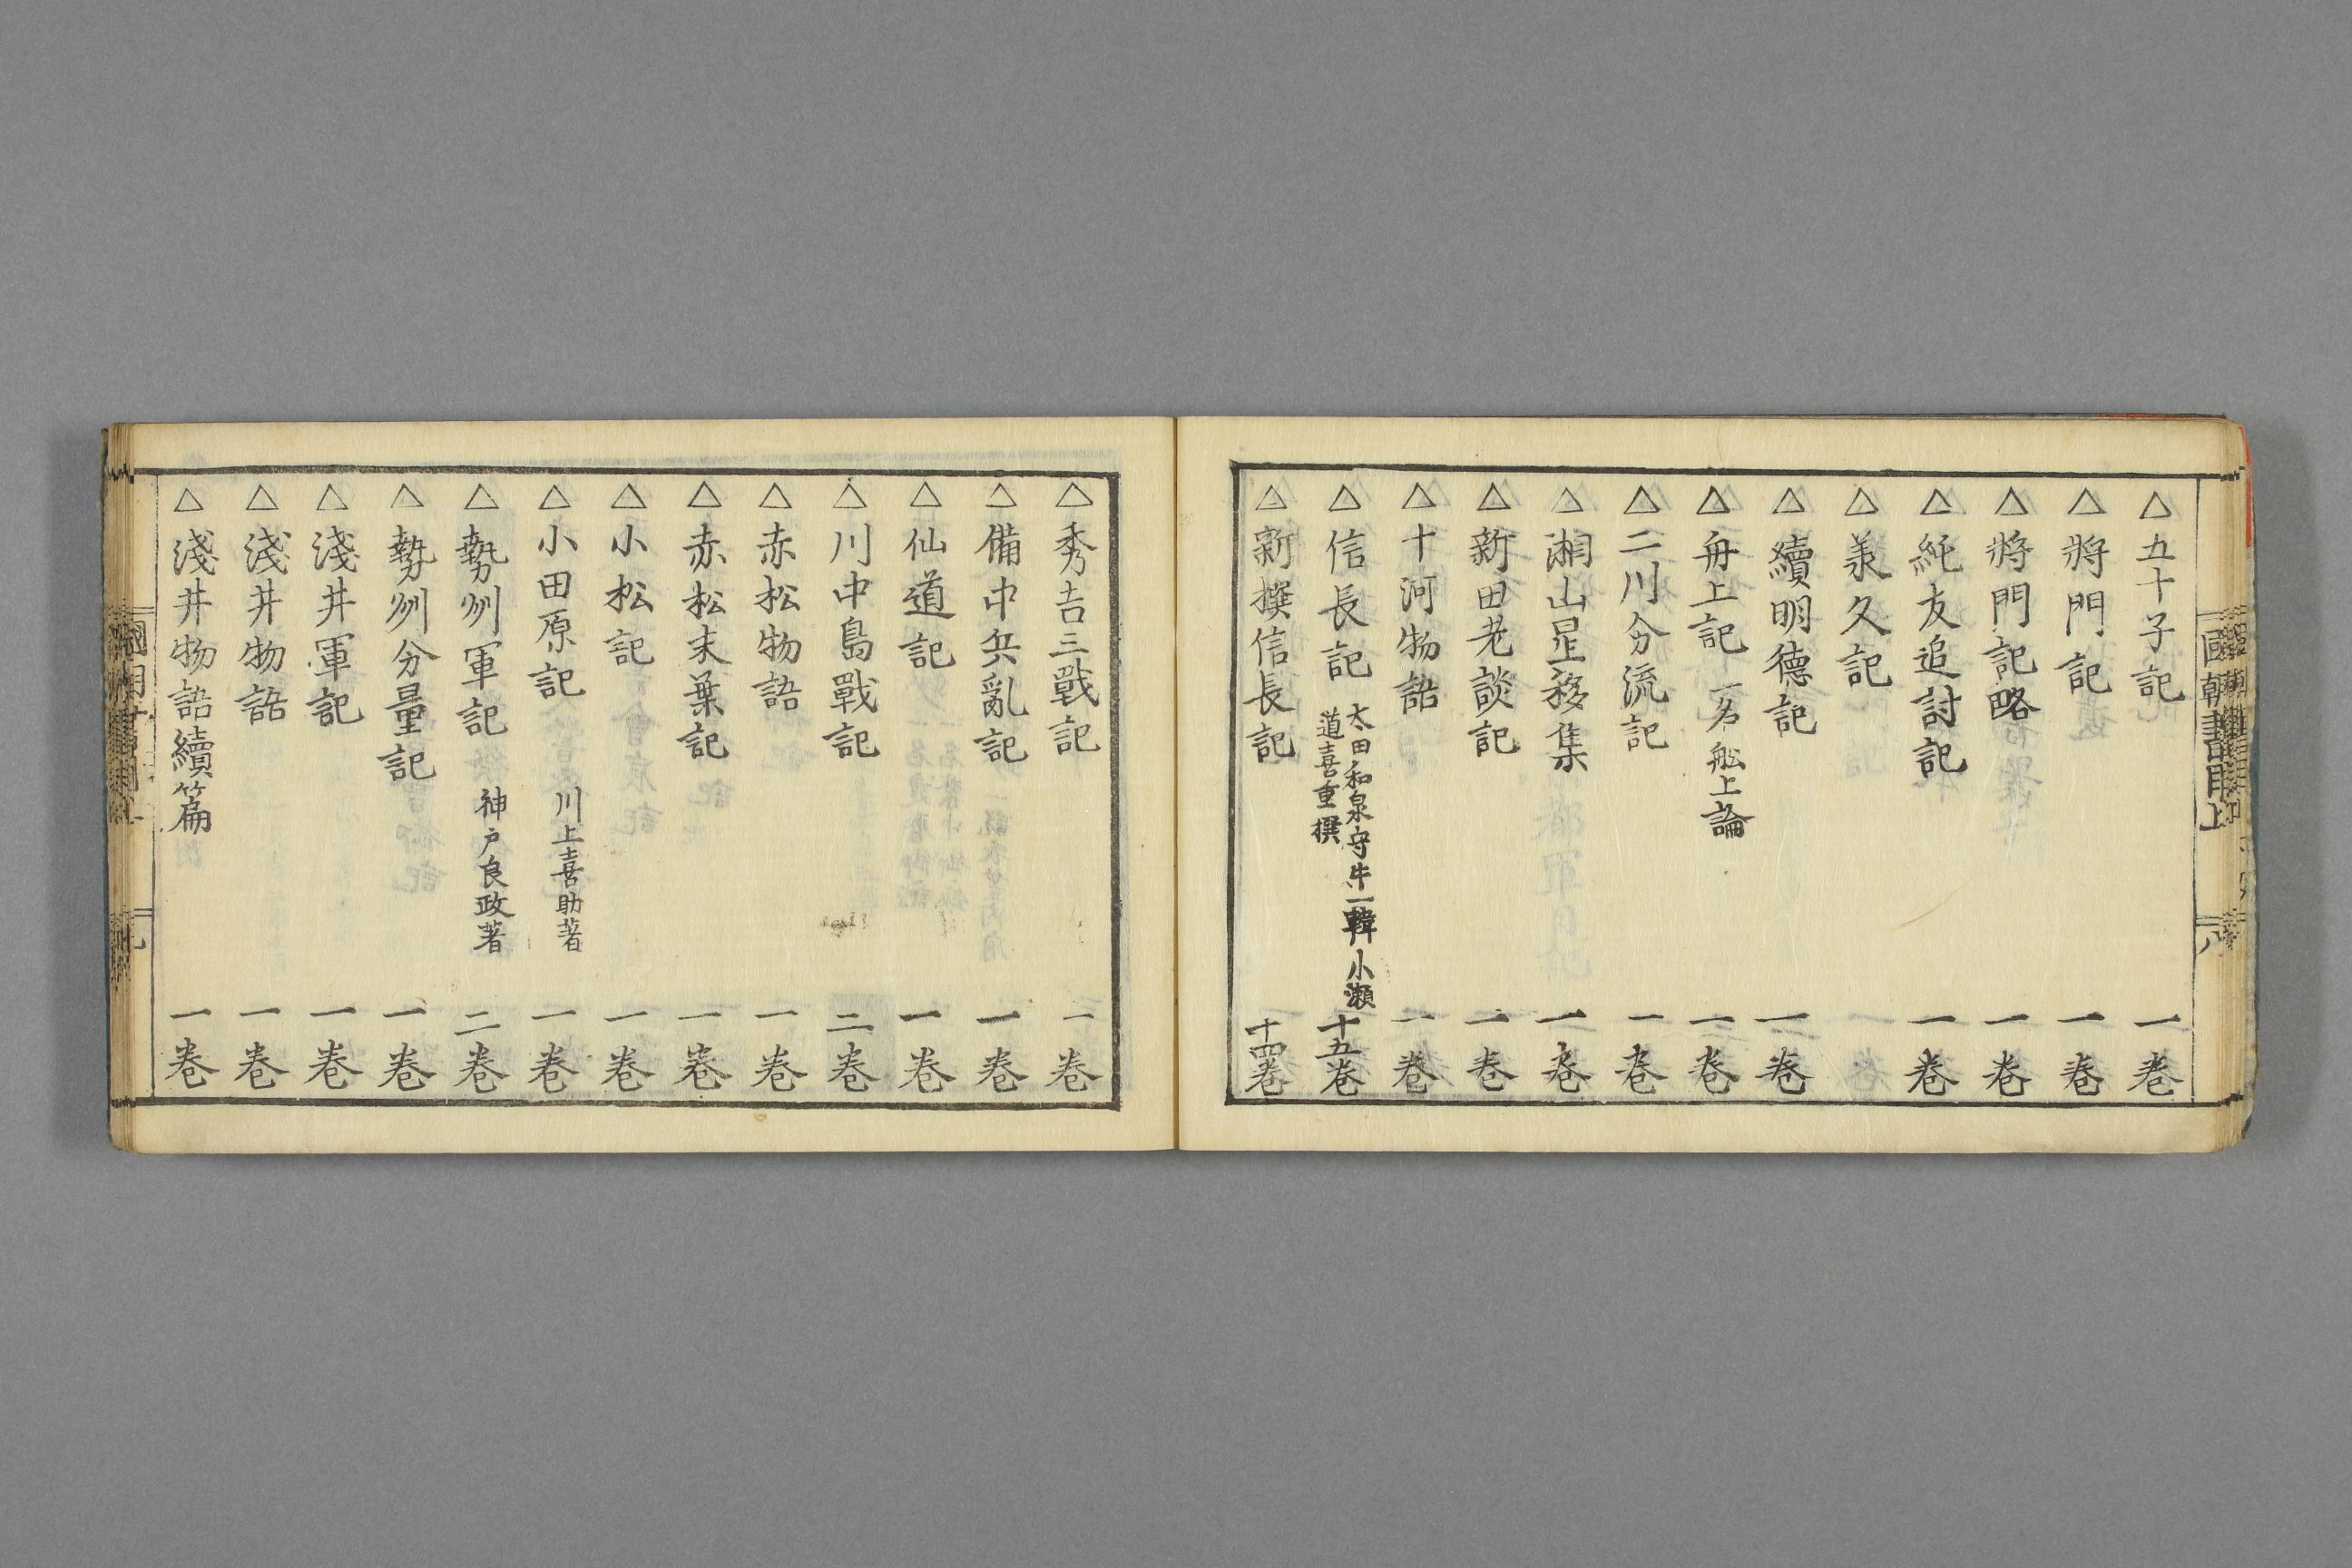 國朝書目上
八
△五十子記 一卷
△將門記 一卷
△將門記略 一卷
△純友追討記 一卷
△羕久記
△續明德記 一卷
△舟上記 一名舩上論 一卷
△二川分流記 一卷
△湘山星移集 一卷
△新田老談記 一卷
△十河物語 一卷
△信長記 太田和泉守牛一輯小瀬
道喜重撰 十五卷
△新撰信長記 十四卷
△秀吉三戰記 一卷
△備中兵亂記 一卷
△仙道記 一卷
△川中島戰記 二卷
△赤松物語 一卷
△赤松末葉記 一卷
△小松記 一卷
△小田原記 川上喜助著 一卷
△勢州軍記 神戸良政著 二卷
△勢州分量記 一卷
△淺井軍記 一卷
△淺井物語 一卷
△淺井物語續篇 一卷